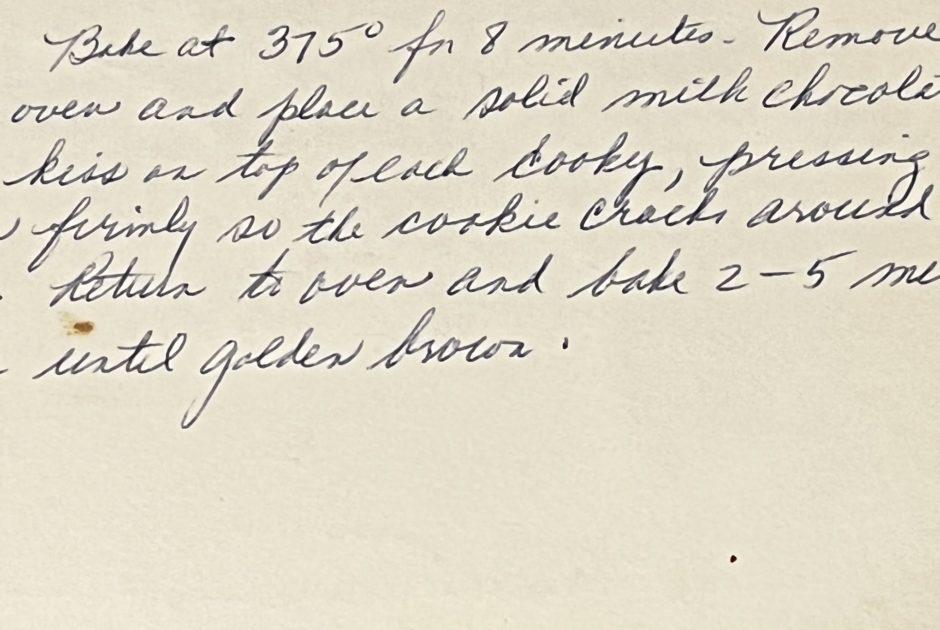 Bake at 375° for 8 minutes. Remove
oven and place a solid milk chocola
kiss on top of each cooky, pressing
firmly so the cookie cracks around
Return to oven and bake 2-5 mi
until golden brown.